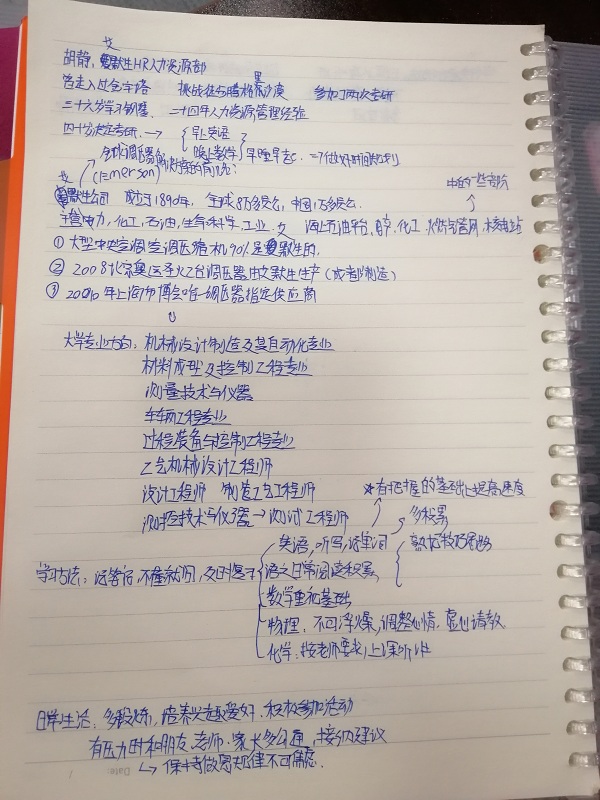 胡静，艾默生HR人力资源部
曾走入过金字塔 挑战徒与腾格里沙漠 参加了两次考研
二十六岁学习钢琴 二十四年人力资源管理经验
四十岁决定考研 → 早上英语
晚上数学 早睡早起 => 做好时间规划
全球调压器 制造的前论：
(Emerson)
艾默生公司 成立于1890年， 全球8万多员工，中国1万多员工 中的一些部门
主管电力，化工，石油，生命科学，工业. 海上石油平台，化工 燃气管网，核电站
① 大型中央空调空调压缩机90%是艾默生的.
② 2008北京奥运圣火台调压器由艾默生生产（或者制造）
③ 2010年上海市博会唯一调压器指定供应商
大学专业方向：机械设计制造及其自动化专业
材料成型及控制工程专业
测量技术与仪器
车辆工程专业
过程装备与控制工程专业
工艺机械设计工程师
设计工程师 制造工艺工程师 ☆有把握的基础上提高速度
测控技术与仪器 → 测试工程师 多积累
英语，听写，背单词 熟悉技巧思路
学习方法：记笔记，不懂就问，及时复习 语文日常阅读积累
数学重视基础
物理：不可浮燥，调整心情，虚心请教
化学：按老师要求，上课听讲
日常生活：多锻炼，培养兴趣爱好，积极参加活动
有压力时和朋友，老师，家长多沟通，接纳建议
↳ 保持做息规律不可懈怠.
Date: